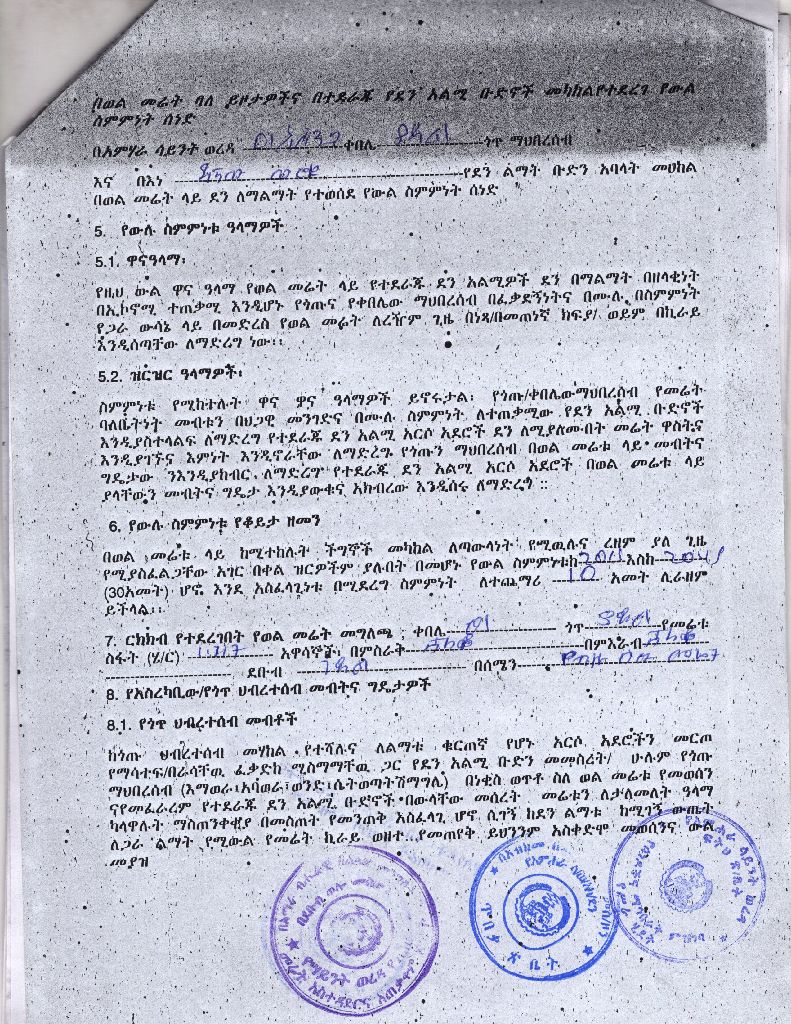 በወል መሬት ባለ ይዞታዎችና በተደራጁ የደን አልሚ ቡድኖች መካከል የተደረገ የውል
ስምምነት ሰነድ
በአምሃራ ሳይንት ወረዳ ቀበሌ ጎጥ ማህበረሰብ
እና በእነ የደን ልማት ቡድን አባላት መሀከል
በወል መሬት ላይ ደን ለማልማት የተወሰደ የውል ስምምነት ሰነድ
5. የውሉ ስምምነቱ ዓላማዎች
5.1. ዋናዓላማ፡
የዚህ ውል ዋና ዓላማ የወል መሬት ላይ የተደራጁ ደን አልሚዎች ደን በማልማት በዘላቂነት
በኢኮኖሚ ተጠቃሚ እንዲሆኑ የጎጡና የቀበሌው ማህበረሰብ በፈቃደኝነትና በሙሉ በስምምነት
የጋራ ውሳኔ ላይ በመድረስ የወል መሬት ለረዥም ጊዜ በነጻ/በመጠነኛ ክፍያ/ ወይም በኪራይ
እንዲሰጣቸው ለማድረግ ነው፡፡
5.2. ዝርዝር ዓላማዎች፡
ስምምነቱ የሚከተሉት ዋና ዋና ዓላማዎች ይኖሩታል፡ የጎጡ/ቀበሌውማህበረሰብ የመሬት
ባለቤትነት መብቱን በህጋዊ መንገድና በሙሉ ስምምነት ለተጠቃሚው የደን አልሚ ቡድኖች
እንዲያስተላልፍ ለማድረግ የተደራጁ ደን አልሚ አርሶ አደሮች ደን ለሚያለሙበት መሬት ዋስትና
እንዲያገኙና እምነት እንዲኖራቸው ለማድረግ የጎጡን ማህበረሰብ በወል መሬቱ ላይ መብትና
ግዴታው ንእንዲያከብር ለማድረግ የተደራጁ ደን አልሚ አርሶ አደሮች በወል መሬቱ ላይ
ያላቸውን መብትና ግዴታ እንዲያውቁና አክብረው እንዲሰሩ ለማድረግ ፡፡
6. የውሉ ስምምነቱ የቆይታ ዘመን
በወል መሬቱ ላይ ከሚተከሉት ችግኞች መካከል ለጣውላነት የሚዉሉና ረዘም ያለ ጊዜ
የሚያስፈልጋቸው አገር በቀል ዝርዎችም ያሉበት በመሆኑ የውል ስምምነቱከ እስከ
(30አመት) ሆኖ እንደ አስፈላጊነቱ በሚደረግ ስምምነት ለተጨማሪ 10 አመት ሊራዘም
ይችላል፡፡
7. ርክክብ የተደረገበት የወል መሬት መግለጫ ; ቀበሌ ጎጥ የመሬቱ
ስፋት (ሄ/ር) አዋሳኞች፤ በምስራቅ በምእራብ
ደቡብ በሰሜን
8. የአስረካቢው/የጎጥ ህብረተሰብ መብትና ግዴታዎች
8.1. የጎጥ ህብረተሰብ መብቶች
ከጎጡ ህብረተሰብ መሃከል የተሻሉና ለልማቱ ቁርጠኛ የሆኑ አርሶ አደሮችን መርጦ
የማሳተፍ/በራሳቸዉ ፈቃድከ ሚስማማቸዉ ጋር የደን አልሚ ቡድን መመስረት/ ሁሉም የጎጡ
ማህበረሰብ (እማወራ፣አባወራ፣ወንድ፣ሴትወጣትሽማግሌ) በነቂስ ወጥቶ ስለ ወል መሬቱ የመወሰን
ናየመፈራረም የተደራጁ ደን አልሚ ቡድኖች በውላቸው መሰረት መሬቱን ለታለመለት ዓላማ
ካላዋሉት ማስጠንቀቂያ በመስጠት የመንጠቅ አስፈላጊ ሆኖ ሲገኝ ከደን ልማቱ ከሚገኝ ውጤት
ለጋራ ልማት የሚውል የመሬት ኪራይ ወዘተ የመጠየቅ ይህንንም አስቀድሞ መወሰንና ውል
መያዝ